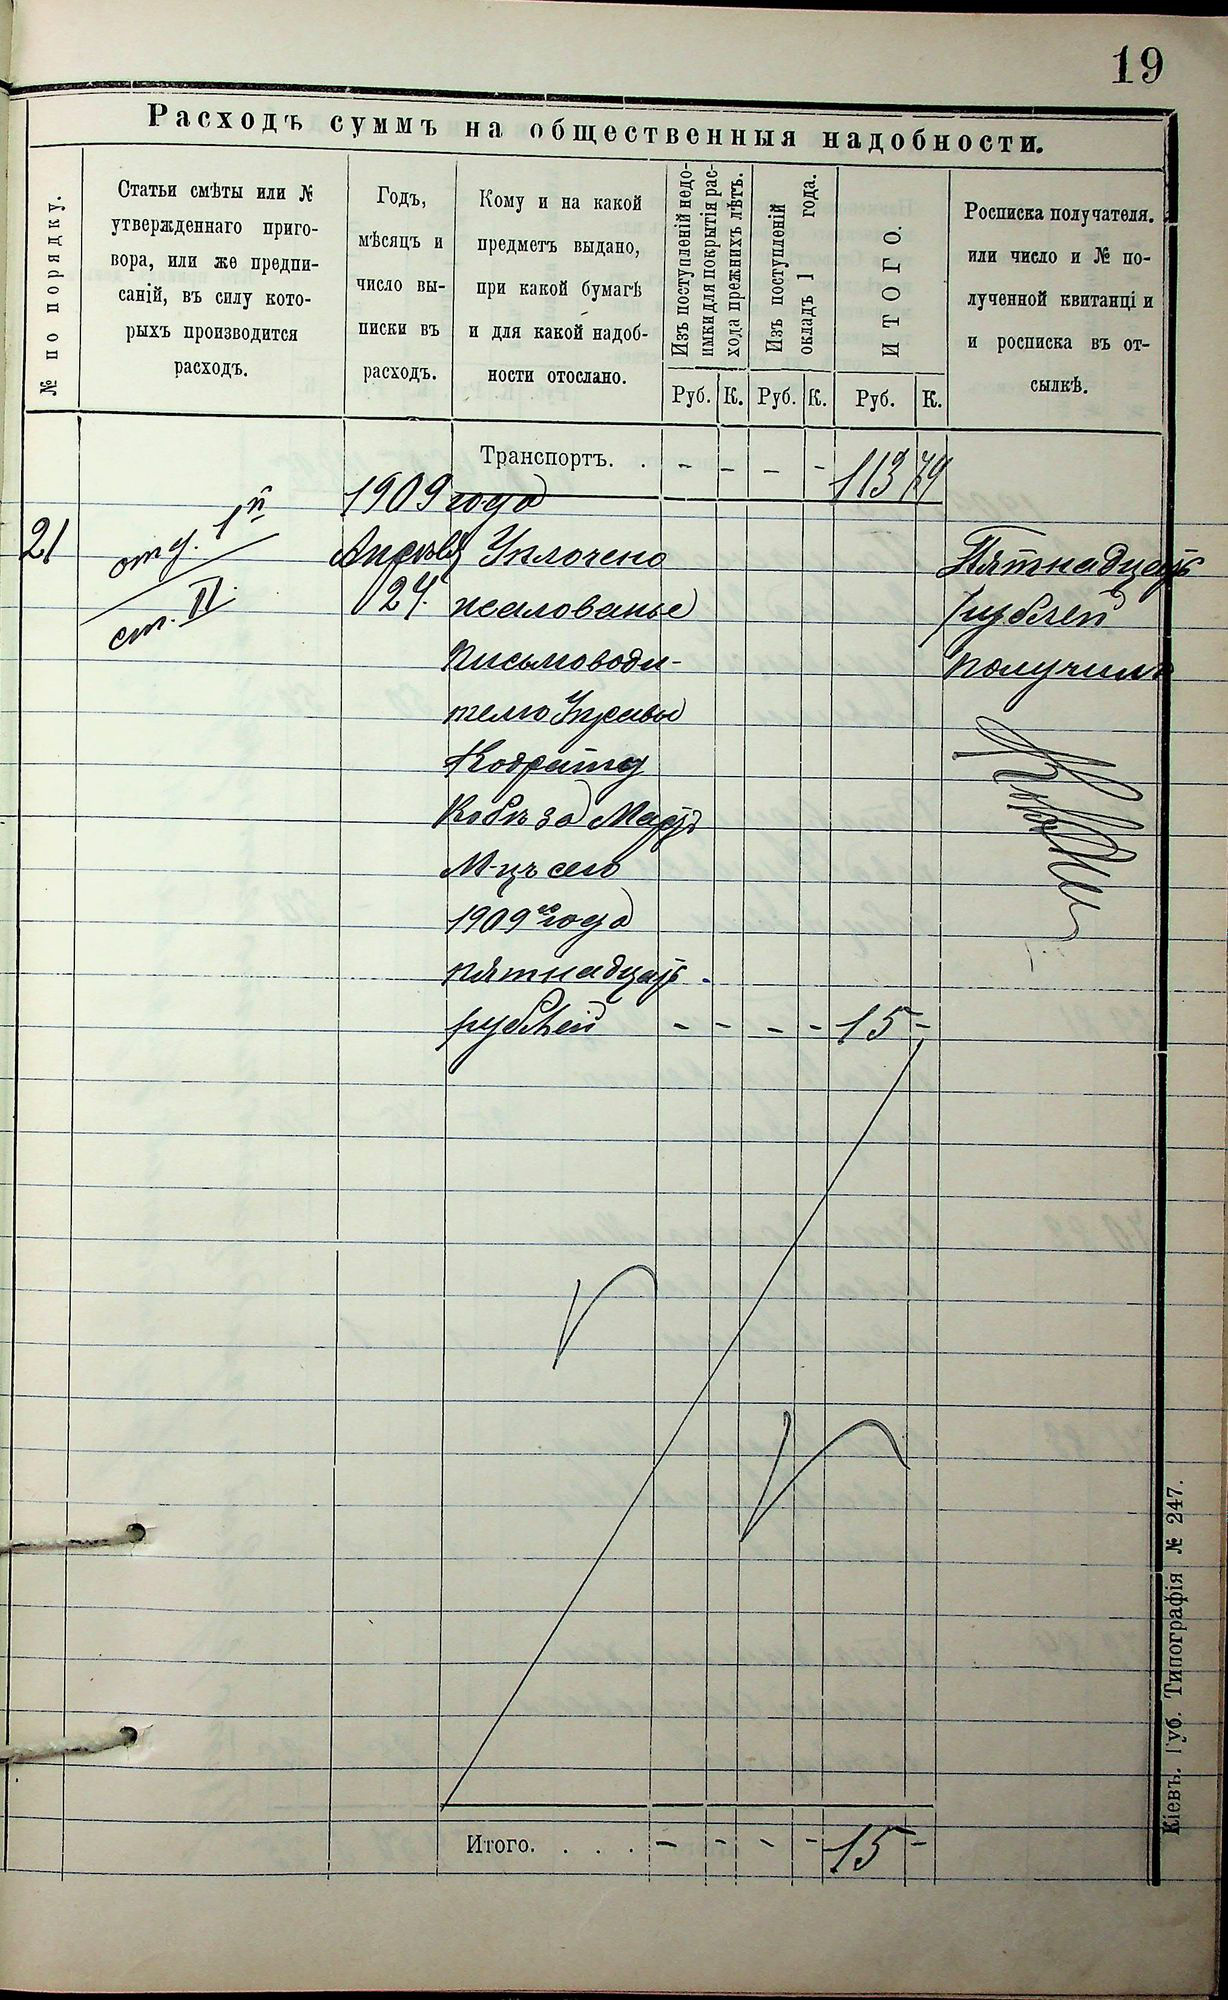 19
Расходъ суммъ на общественныя надобности.
№ по порядку.
Статьи смѣты или №
утвержденнаго приго-
вора, или же предпи-
саній, въ силу кото-
рыхъ производится
расходъ.
Годъ,
мѣсяцъ и
число вы-
писки въ
расходъ.
Кому и на какой
предметъ выдано,
при какой бумагѣ
и для какой надоб-
ности отослано.
Изъ поступленій недо-
имки для покрытія рас-
хода прежнихъ лѣтъ.
Изъ поступленій
окладъ 1 года.
ИТОГО.
Росписка получателя.
или число и № по-
лученной квитанці и
и росписка въ от-
сылкѣ.
Руб. К. Руб. К. Руб. К.
Транспортъ. . - - - - 113 79
1909 года
21
отд. 1й
ст. II.
Апрѣля
24.
Уплочено
жалованье
письмоводи-
телю Управы
Кодрату
за Мартъ
М-цъ сего
1909го года
пятнадцать
рублей - - - - 15 -
Пятнадцать
рублей
получилъ
Итого. . . . - - - - 15 -
Кіевъ. Губ. Типографія № 247.